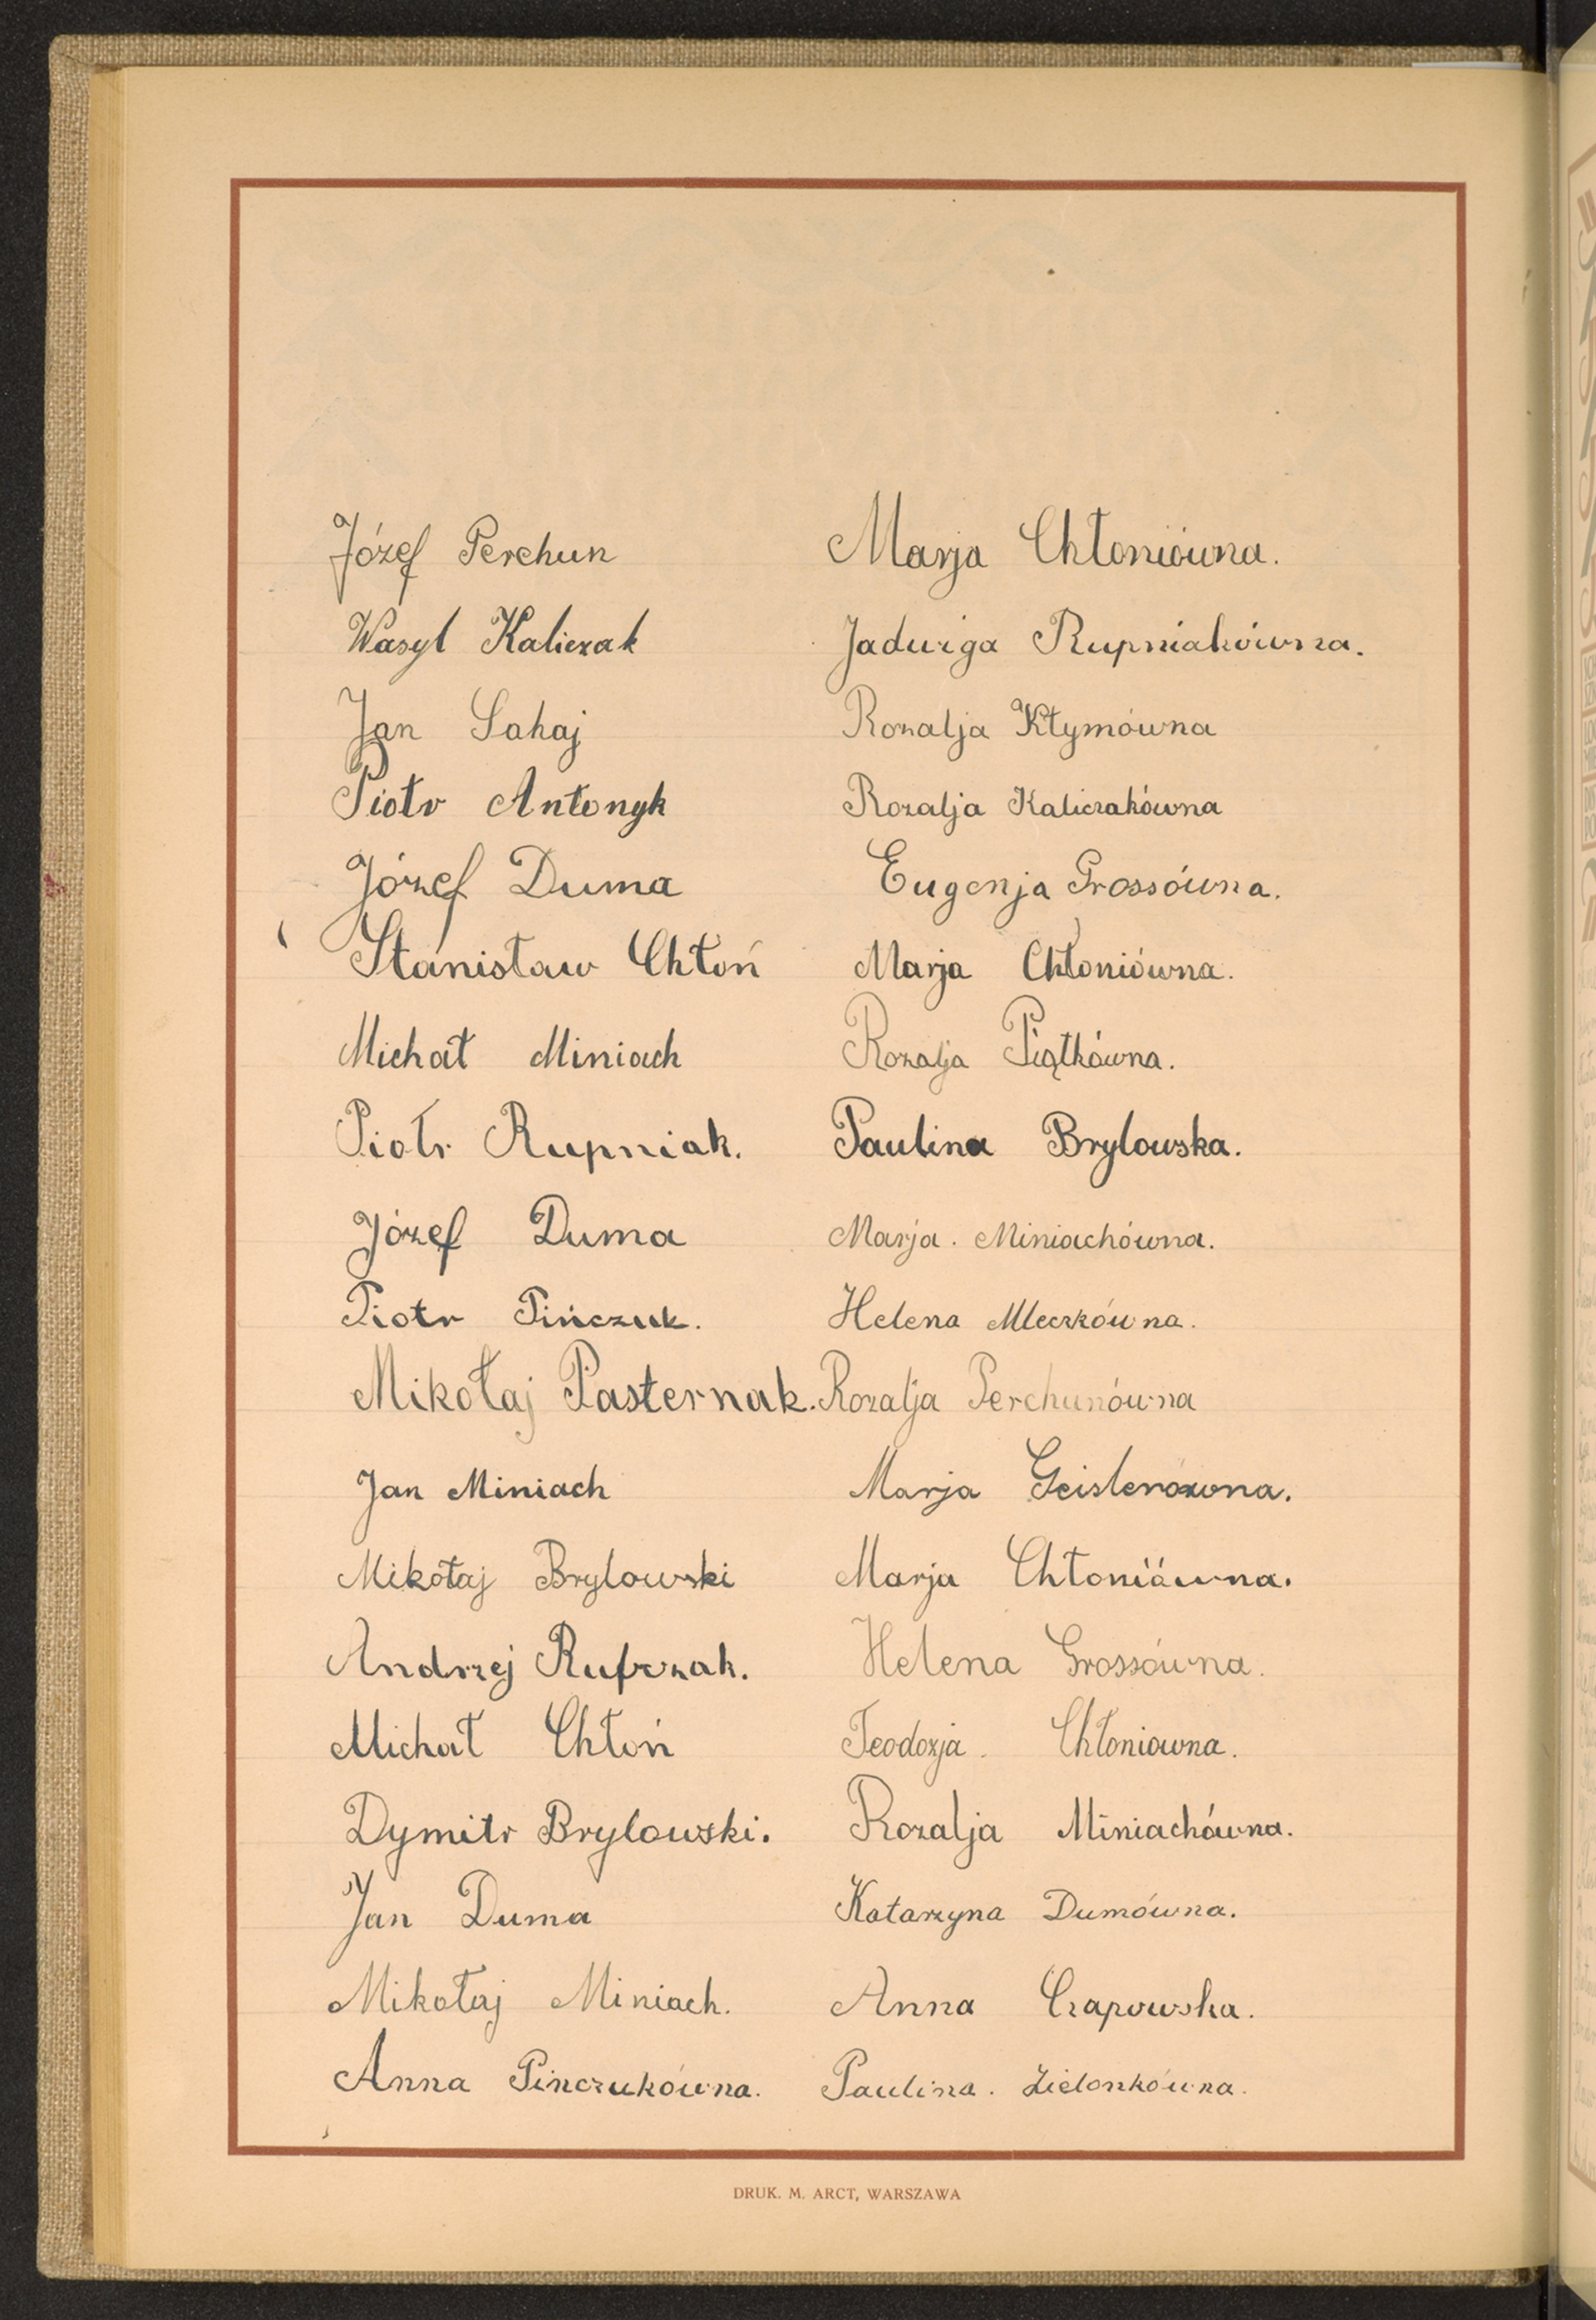 Józef Perchun Marja Chłoniówna.
Wasyl Kaliczak Jadwiga Rupniakówna.
Jan Sahaj Rozalja Kłymówna
Piotr Antonyk Rozalja Kaliczakówna
Józef Duma Eugenja Grossówna.
Stanisław Chłoń Marja Chłoniówna.
Michał Miniach Rozalja Piątkówna.
Piotr Rupniak. Paulina Brylowska.
Józef Duma Marja. Miniachówna.
Piotr Pińczuk. Helena Mleczkówna.
Mikołaj Pasternak. Rozalja Perchunówna
Jan Miniach Marja Geislerówna.
Mikołaj Brylowski Marja Chłonióẃna.
Andrzej Helena Grossówna.
Michał Chłoń Teodozja. Chłoniowna.
Dymitr Brylowski. Rozalja Miniachówna.
Jan Duma Katarzyna Dumówna.
Mikołaj Miniach. Anna Czapowska.
Anna Pinczukówna. Paulina. Zielonkówna.
DRUK. M. ARCT, WARSZAWA